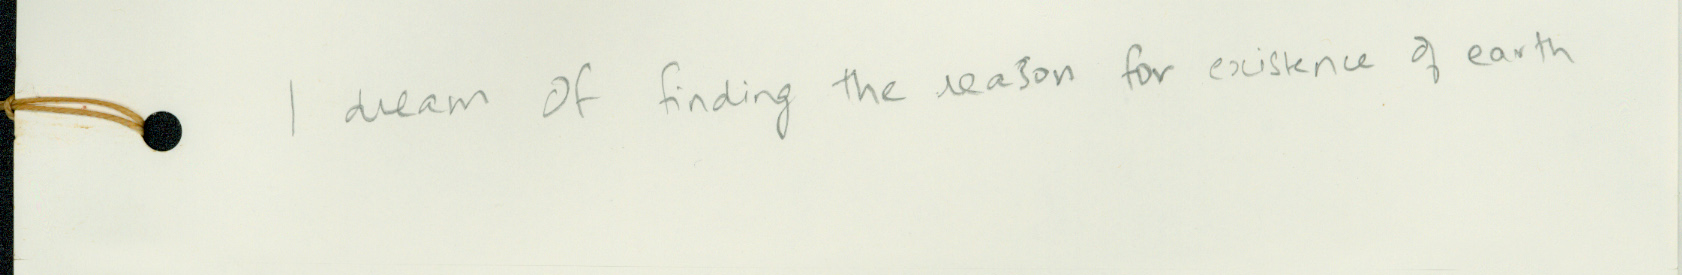 I dream of finding the reason for existence of earth